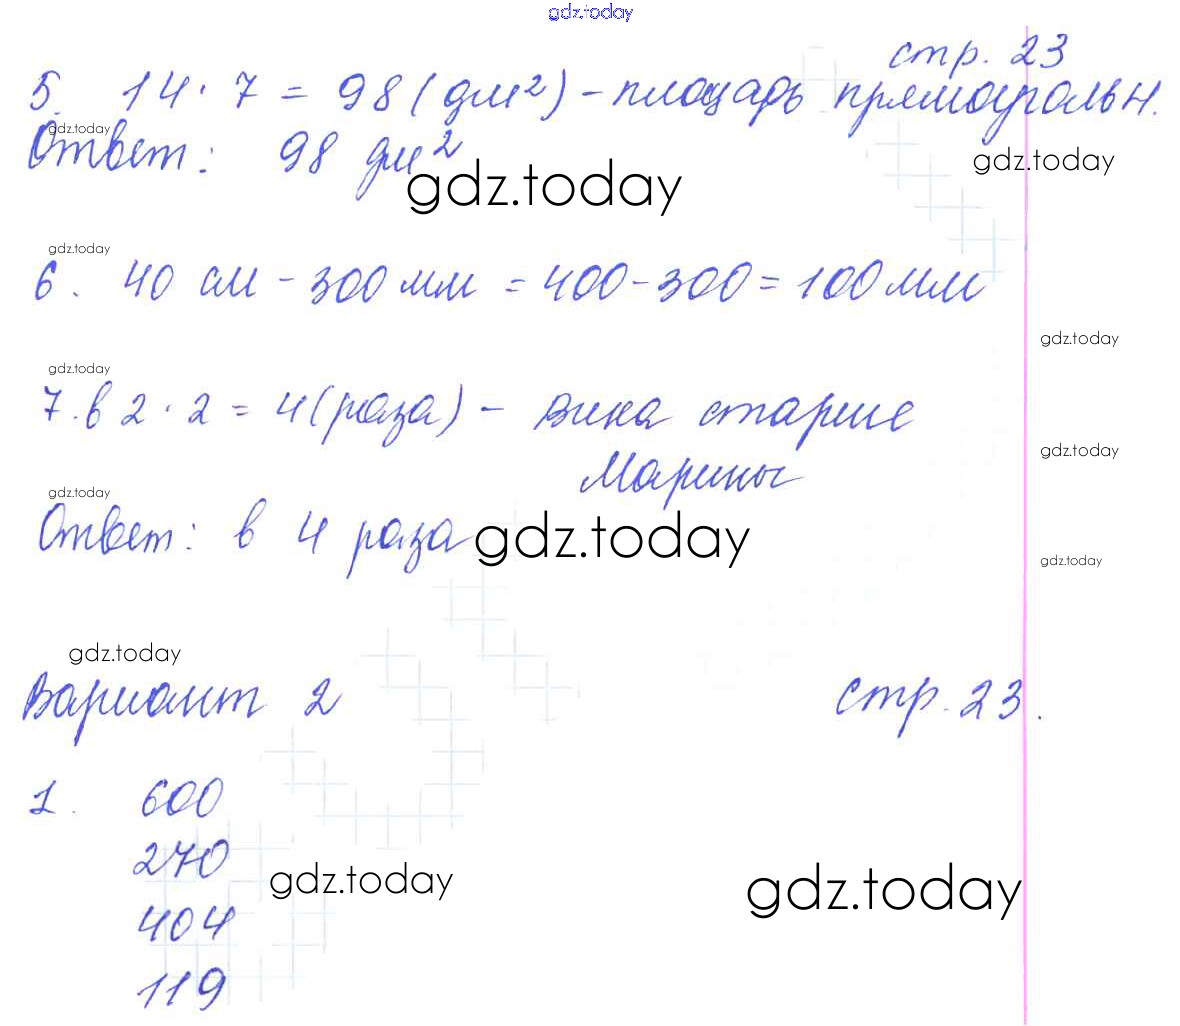 gdz.today
стр. 23
5. 14 · 7 = 98 (дм²) - площадь прямоугольн.
gdz.today
Ответ: 98 дм²
gdz.today
gdz.today
gdz.today
6. 40 см - 300 мм = 400 - 300 = 100 мм
gdz.today
gdz.today
7. в 2 · 2 = 4 (раза) - Вика старше
Марины
gdz.today
gdz.today
Ответ: в 4 раза
gdz.today
gdz.today
gdz.today
Вариант 2 стр. 23.
1. 600
270
gdz.today
gdz.today
404
119